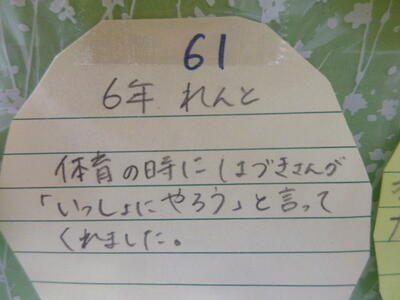 61
6年 れんと
体育の時にしまづきさんが
「いっしょにやろう」と言って
くれました。